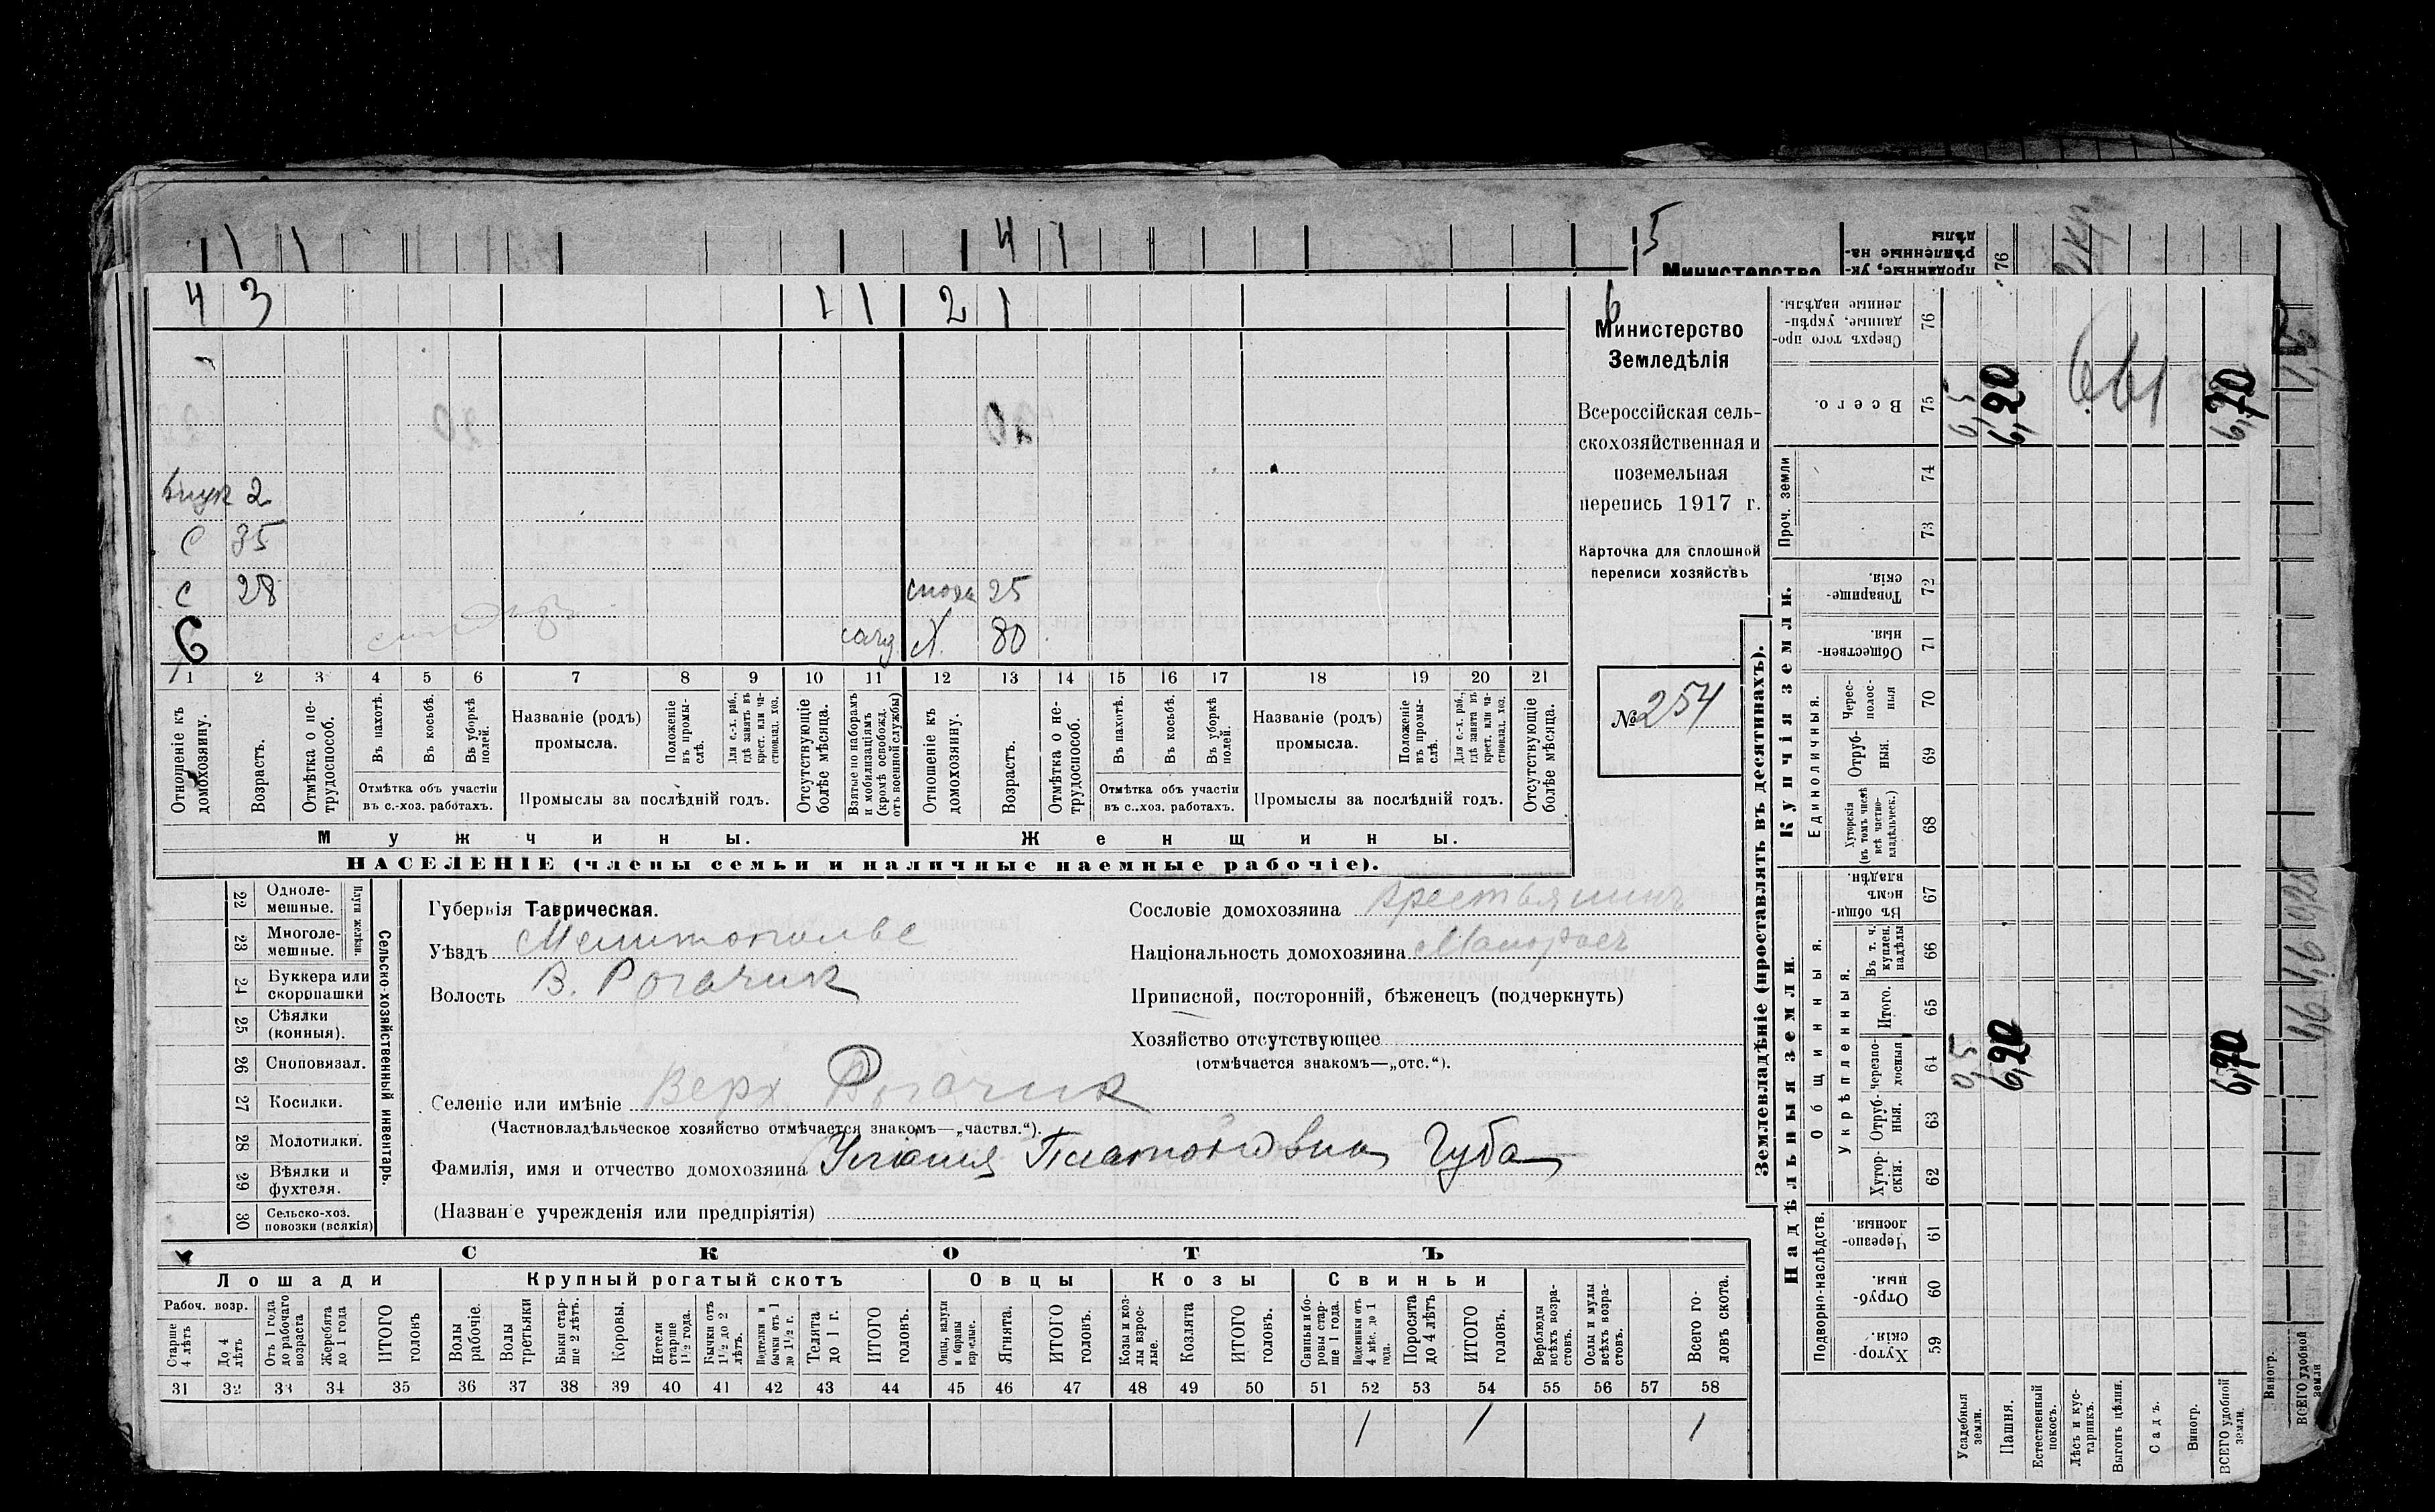 4 3 1 1 2 1 6
внук 2
С 35
С 28 сноха 25
Х. 80
1 2 3 4 5 6 7 8 9 10 11 12 13 14 15 16 17 18 19 20 21
Отношеніе къ домохозяину.
Возрастъ.
Отмѣтка о нетрудоспособ.
Въ пахотѣ.
Въ косьбѣ.
Въ уборкѣ полей.
Отмѣтка объ участіи
въ с.-хоз. работахъ.
Названіе (родъ)
промысла.
Положеніе въ промыслѣ.
Для с.-х. раб., гдѣ занятъ въ крест. или частновлад. хоз.
Промыслы за послѣдній годъ.
Отсутствующіе болѣе мѣсяца.
Взятые по наборамъ и мобилизаціямъ (кромѣ освобожд. отъ военной службы)
Отношеніе къ домохозяину.
Возрастъ.
Отмѣтка о нетрудоспособ.
Въ пахотѣ.
Въ косьбѣ.
Въ уборкѣ полей.
Отмѣтка объ участіи
въ с.-хоз. работахъ.
Названіе (родъ)
промысла.
Положеніе въ промыслѣ.
Для с.-х. раб., гдѣ занята въ крест. или частновлад. хоз.
Промыслы за послѣдній годъ.
Отсутствующіе болѣе мѣсяца.
Мужчины. Женщины.
НАСЕЛЕНІЕ (члены семьи и наличные наемные рабочіе).
Министерство
Земледѣлія
Всероссійская сель-
скохозяйственная и
поземельная
перепись 1917 г.
Карточка для сплошной
переписи хозяйствъ
№ 254
22 Однолемешные.
23 Многолемешные.
Плуги желѣзн.
24 Буккера или скоропашки
25 Сѣялки (конныя).
26 Сноповязал.
27 Косилки.
28 Молотилки.
29 Вѣялки и фухтеля.
30 Сельско-хоз. повозки (всякія)
Сельско-хозяйственный инвентарь.
Губернія Таврическая.
Уѣздъ
Волость В. Рогачик
Сословіе домохозяина Крестьянинъ
Національность домохозяина Малоросъ
Приписной, посторонній, бѣженецъ (подчеркнуть)
Хозяйство отсутствующее
(отмѣчается знакомъ—„отс.“).
Селеніе или имѣніе Верх Рогачик
(Частновладѣльческое хозяйство отмѣчается знакомъ—„частвл.“).
Фамилія, имя и отчество домохозяина Платоновна Губа
(Названіе учрежденія или предпріятія)
СКОТЪ
Лошади Крупный рогатый скотъ Овцы Козы Свиньи
Рабоч. возр.
Старше 4 лѣтъ
До 4 лѣтъ
Отъ 1 года до рабочаго возраста
Жеребята до 1 года
ИТОГО головъ
Волы рабочіе.
Волы третьяки
Быки старше 2 лѣтъ.
Коровы.
Нетели старше 1½ года.
Бычки отъ 1½ до 2 лѣтъ.
Подтелки и бычки отъ 1 до 1½ г.
Телята до 1 г.
ИТОГО головъ.
Овцы, валухи и бараны взрослые.
Ягнята.
ИТОГО головъ.
Козы и козлы взрослые.
Козлята
ИТОГО головъ.
Свиньи и боровы старше 1 года.
Подсвинки отъ 4 мѣс. до 1 года.
Поросята до 4 лѣтъ
ИТОГО головъ.
Верблюды всѣхъ возрастовъ.
Ослы и мулы всѣхъ возрастовъ.
Всего головъ скота.
31 32 33 34 35 36 37 38 39 40 41 42 43 44 45 46 47 48 49 50 51 52 53 54 55 56 57 58
1 1 1
Землевладѣніе (проставлять въ десятинахъ).
Сверхъ того проданные, укрѣпленные надѣлы. 76
Всего. 75 6,20 661 6,70
Проч. земли 74 73
Купчія земли.
Товарищескія. 72
Общественныя. 71
Единоличныя.
Чересполосныя 70
Отрубныя. 69
Хуторскія (въ томъ числѣ всѣ частновладѣльческ.) 68
Надѣльныя земли.
Общинныя.
Въ общинномъ владѣн. 67
Укрѣпленныя.
Въ т. ч. куплен. надѣлы 66
Итого. 65
Черезполосныя 64 6,20 6,70
Отрубныя. 63
Хуторскія. 62
Подворно-наслѣдств.
Черезполосныя. 61
Отрубныя. 60
Хуторскія. 59
Усадебныя земли.
Пашня.
Естественный покосъ.
Лѣсъ и кустарникъ.
Выгонъ цѣлин.
Садъ.
Виногр.
ВСЕГО удобной земли.
4 1 5
Министерство
76
Виногр.
ВСЕГО удобной земли